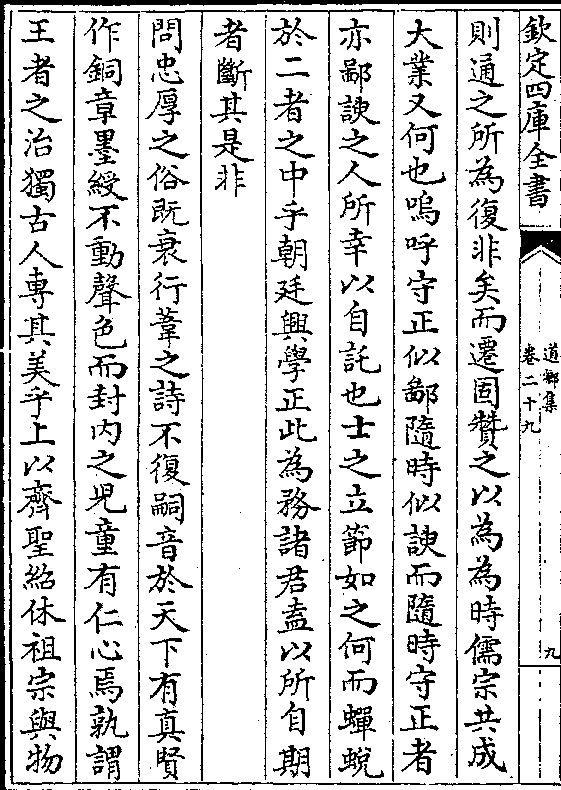 欽定四庫全書
道鄉集
卷二十九
九
則通之所為復非矣而遷固贊之以為為時儒宗共成
大業又何也嗚呼守正似鄙隨時似諛而隨時守正者
亦鄙諛之人所幸以自託也士之立節如之何而蟬蛻
於二者之中乎朝廷興學正此為務諸君盍以所自期
者斷其是非
問忠厚之俗既衰行葦之詩不復嗣音於天下有真賢
作銅章墨綬不動聲色而封内之児童有仁心焉孰謂
王者之治獨古人專其美乎上以齊聖紹休祖宗與物